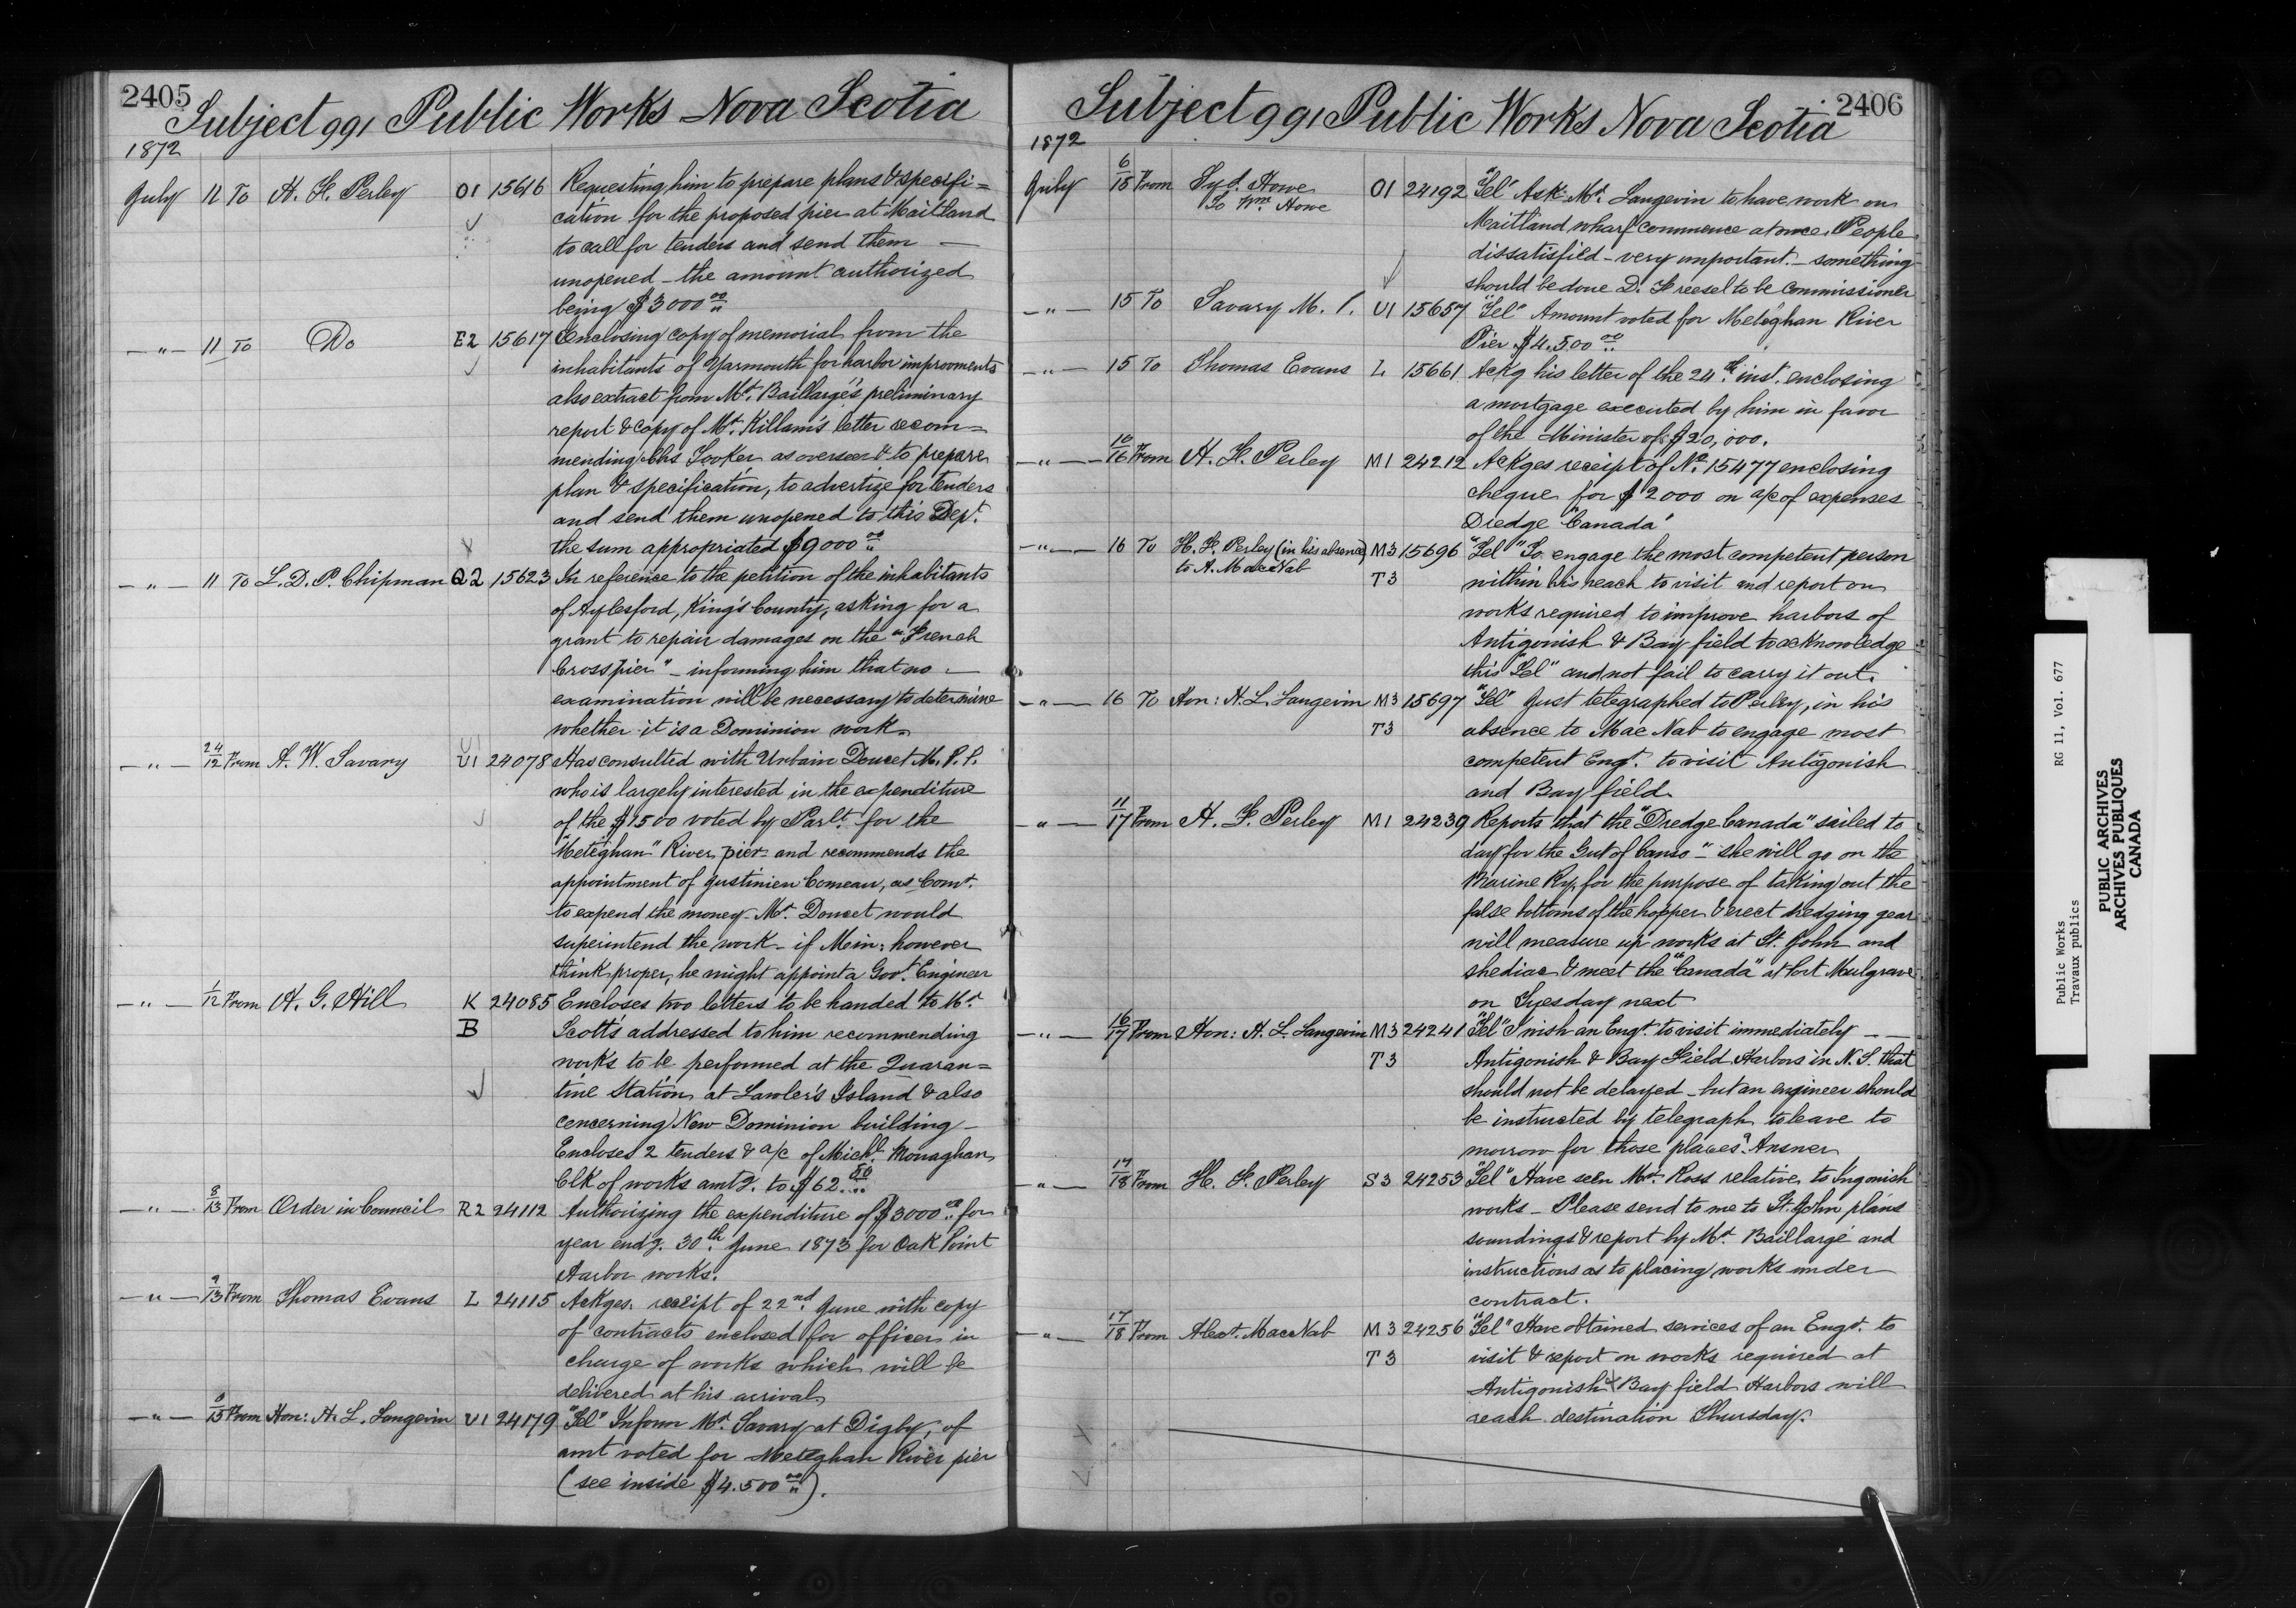 2405
Subject 991 Public Works Nova Scotia
1872
July 11 To H. F. Perley O1 15616 Requesting him to prepare plans & specifi=
cation for the proposed pier at Maitland
to call for tenders and send them —
unopened – the amount authorized
being $3000 00
— " — 11 To Do E2 15617 Enclosing copy of memorial from the
inhabitants of Yarmouth for harbor improvements
also extract from Mr. Baillargé's preliminary
report & copy of Mr. Killam's letter recom=
mending Chs Tooker as overseer & to prepare
plan & specification, to advertize for tenders
and send them unopened to this Dept.
the sum appropriated $9000 00
— " — 11 To L. D. P. Chipman Q2 15623 In reference to the petition of the inhabitants
of Aylesford, King's County, asking for a
grant to repair damages on the "French
Cross pier" – informing him that no —
examination will be necessary to determine
whether it is a Dominion work.
— " — 24/12 From A. W. Savary U1 24078 Has consulted with Urbain Doucet M. P. P.
who is largely interested in the expenditure
of the $1500 voted by Parlt. for the
"Meteghan" River pier – and recommends the
appointment of Justinien Comeau, as Comr.
to expend the money Mr. Doucet would
superintend the work – if Min: however
think proper, he might appoint a Govt. Engineer
— " — 1/12 From H. G. Hill K 24085 Encloses two letters to be handed to Mr.
B Scott's addressed to him recommending
works to be performed at the Quaran=
tine Station at Lawler's Island & also
concerning New Dominion building –
Encloses 2 tenders & a/c of Michl. Monaghan
Clk of works amtg. to $62.50
— " — 8/13 From Order in Council R2 24112 Authorizing the expenditure of $3000 00 for
year endg. 30th June 1873 for Oak Point
Harbor works.
— " — 9/13 From Thomas Evans L 24115 Ackges. receipt of 22nd June with copy
of contracts enclosed for officer in
charge of works which will be
delivered at his arrival
— " — /15 From Hon: H. L. Langevin U1 24179 "Tel" Inform Mr. Savary at Digby, of
amt voted for Meteghan River pier
(see inside $4.500 00).
2406
Subject 991 Public Works Nova Scotia
1872
July 6/15 From Syd. Howe O1 24192 "Tel" Ask Mr. Langevin to have work on
To Wm. Howe
Maitland wharf commence at once. People
dissatisfied – very important – something
should be done D. Freesel to be commissioner
— " — 15 To Savary M. P. U1 15657 "Tel" Amount voted for Meteghan River
Pier $4.500 00
— " — 15 To Thomas Evans L 15661 Ackg his letter of the 24th inst. enclosing
a mortgage executed by him in favor
of the Minister of $20,000.
— " — 10/16 From H. F. Perley M1 24212 Ackges receipt of No. 15477 enclosing
cheque for $2000 on a/c of expenses
Dredge "Canada"
— " — 16 To H. F. Perley (in his absence) M3 15696 "Tel" To engage the most competent person
to A. MacNab T3 within his reach to visit and report on
works required to improve harbors of
Antigonish & Bay field to acknowledge
this "Tel" and not fail to carry it out.
— " — 16 To Hon: H. L. Langevin M3 15697 "Tel" Just telegraphed to Perley, in his
T3 absence to Mac Nab to engage most
competent Engr. to visit Antigonish
and Bay field.
" — 11/17 From H. F. Perley M1 24239 Reports that the "Dredge Canada" sailed to
day for the Gut of Canso – she will go on the
Marine Ry. for the purpose of taking out the
false bottoms of the hopper & erect dredging gear
will measure up works at St. John and
Shediac & meet the "Canada" at Port Mulgrave
on Tuesday next
— " — 16/17 From Hon: H. L. Langevin M3 24241 "Tel" I wish an Engr. to visit immediately — —
T3 Antigonish & Bay Field Harbors in N. S. that
should not be delayed – but an engineer should
be instructed by telegraph to leave to
morrow for those places. Answer
— " — 17/18 From H. F. Perley S3 24253 "Tel" Have seen Mr. Ross relative to Ingonish
works – Please send to me to St. John plans
soundings & report by Mr. Baillargé and
instructions as to placing works under
contract.
— " — 17/18 From Alexr. MacNab M3 24256 "Tel" Have obtained services of an Engr. to
T3 visit & report on works required at
Antigonish & Bay field Harbors will
reach destination Thursday.
Public Works RG 11, Vol. 677
Travaux publics
PUBLIC ARCHIVES
ARCHIVES PUBLIQUES
CANADA